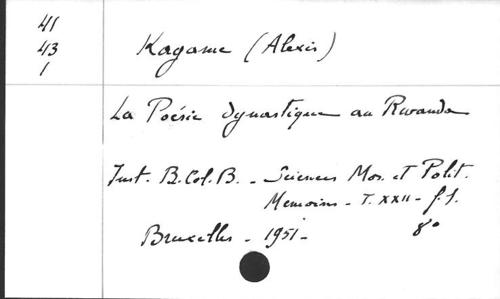 41
43
1
Kagame (Alexis)
La Poésie dynastique au Rwanda
Inst. B. Col. B. - Sciences Mor. et Polit.
Memoires - T. XXII - f. 1.
Bruxelles - 1951 - 8°